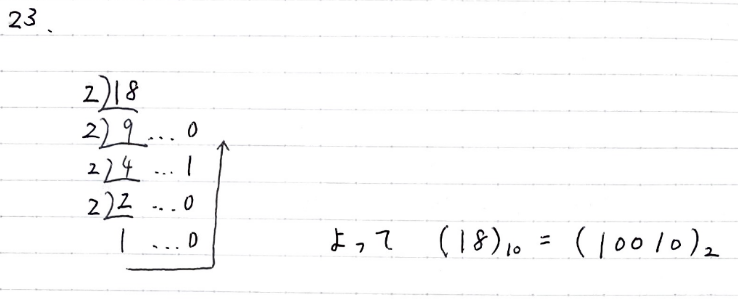 23.
2)18
2)9 ... 0
2)4 ... 1
2)2 ... 0
1 ... 0
よって (18)₁₀ = (10010)₂